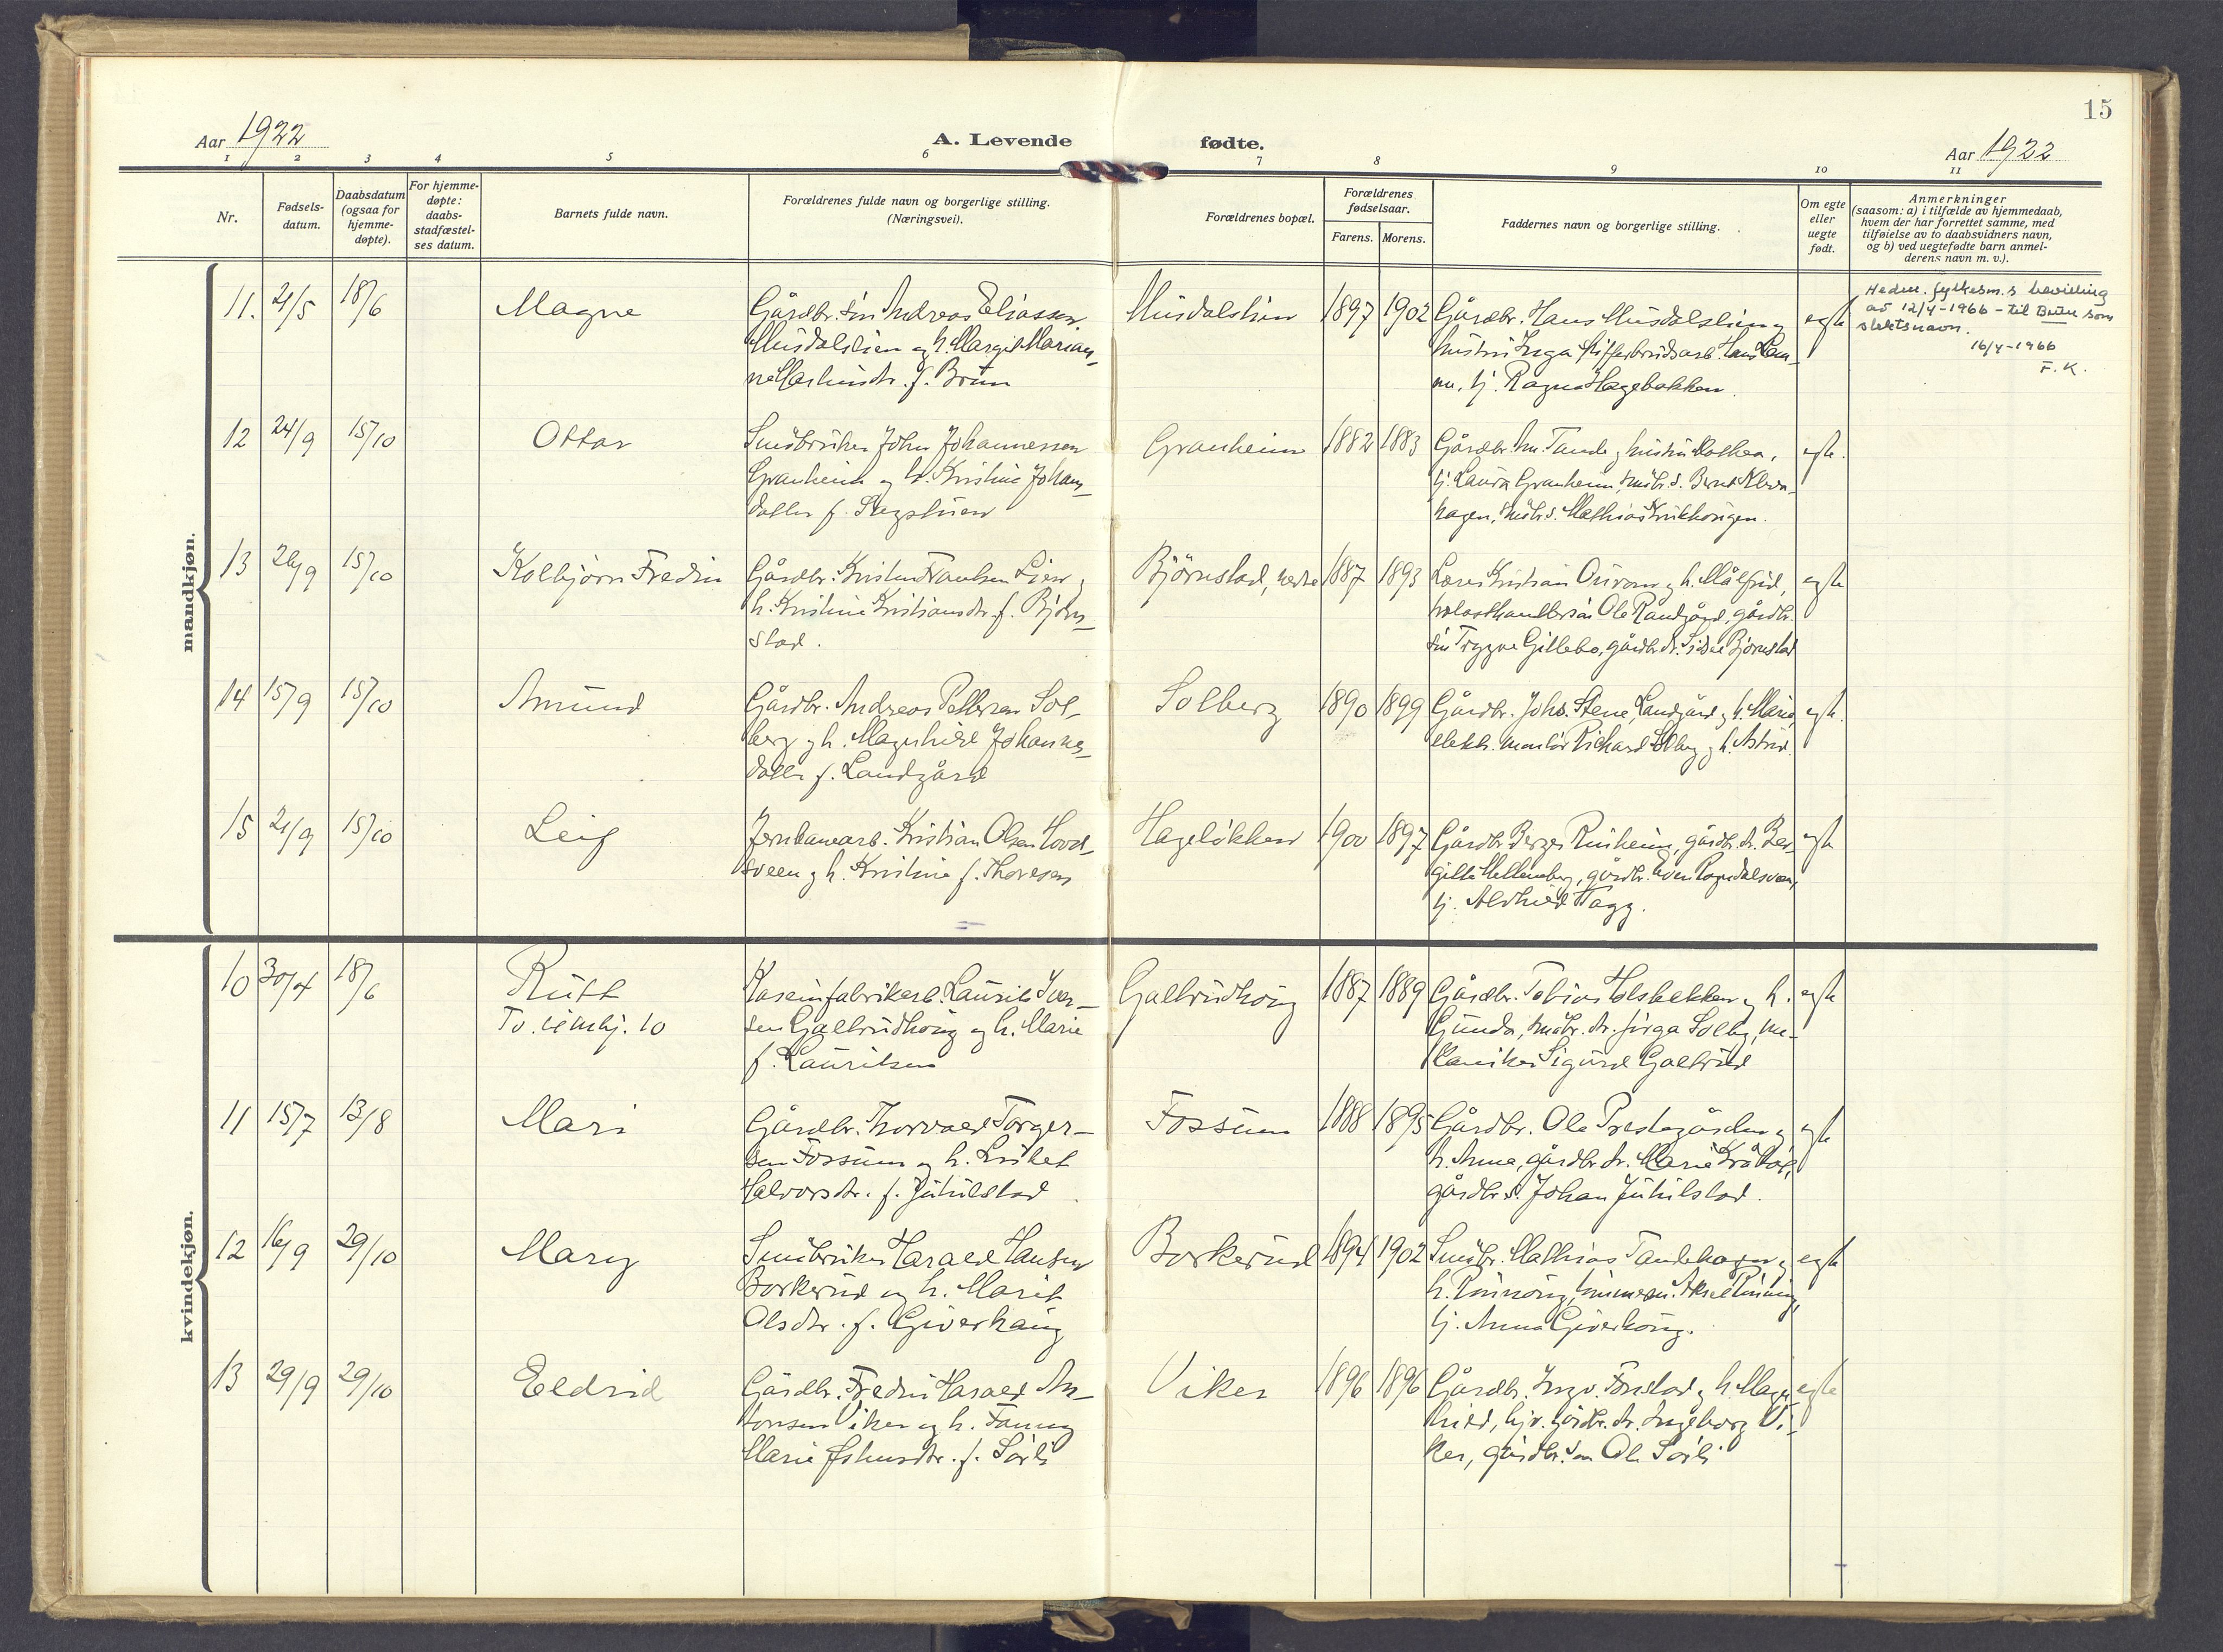 15
Aar 1922
A. Levende fødte.
Aar 1922
1 2 3 4 5 6 7 8 9 10 11
Nr.
Fødsels-
datum.
Daabsdatum
(ogsaa for
hjemme-
døpte).
For hjemme-
døpte:
daabs-
stadfæstel-
ses datum.
Barnets fulde navn.
Forældrenes fulde navn og borgerlige stilling.
(Næringsvei).
Forældrenes bopæl.
Forældrenes
fødselsaar.
Farens. Morens.
Faddernes navn og borgerlige stilling.
Om egte
eller
uegte
født.
Anmerkninger
(saasom: a) i tilfælde av hjemmedaab,
hvem der har forrettet samme, med
tilføielse av to daabsvidners navn,
og b) ved uegtefødte barn anmel-
derens navn m. v.).
mandkjøn.
11. 21/5 18/6 Magne
Gårdbr. sön Andreas Eliassen
Musdalslien og h. Margit Marian-
ne f. Brun
Musdalslien 1897 1902
Gårdbr. Hans Musdalslien og
hustru Inga
tj. Ragna Hagebakken.
egte
Hedm. fylkesm.s bevilling
av 12/4-1966 - til Bruu som
slektsnavn.
16/4-1966
F. K.
12 24/9 15/10 Ottar
Småbruker John Johannessen
Granheim og h. Kristine Johans-
datter f. Slagstuen
Granheim 1882 1883
Gårdbr. Tande og hustru
tj. Laura Granheim, småbr.s. Bernt
hagen, småbr.s. Mathias
egte.
13 26/9 15/10 Kolbjørn Fredrik
Gårdbr. Kristen Frantsen Lien og
h. Kristine Kristiansdtr. f. Bjørn-
stad.
Björnstad, nedre 1887 1893
Lærer Kristian Onsrum og h. Målfrid,
Ole Randgård, gårdbr.
sön Trygve Gillebo, gårdbr. dtr. Bjørnstad
egte
14 15/9 15/10 Amund
Gårdbr. Andreas Pettersen Sol-
berg og h. Magnhild Johannes-
datter f. Landgård
Solberg 1890 1899
Gårdbr. Johs. Stene, Landgård og h. Marie,
elektr. montör Rickard Solberg og h. Astrid.
egte.
15 21/9 15/10 Leif
Jernbanearb. Kristian Olsen Hovd-
sveen og h. Kristine f. Thoresen
Hagelökken 1900 1897
Gårdbr. Birger Rusheim, gårdbr. dtr. Ber-
gitte Mellemberg, gårdbr. Even
tj. Alvhild Hagg.
egte
kvindekjøn.
10 30/4 18/6 Rutt
Tv. 10
Kaseinfabrikarb. Laurits Iver-
sen Galbrudhaug og h. Marie
f. Lauritsen
Galbrudhaug 1887 1889
Gårdbr. Tobias Holsbekken og h.
Gunda, småbr. dtr. Solberg, me-
kaniker Sigurd Galbrud
egte
11 15/7 13/8 Mari
Gårdbr. Thorvald Torger-
sen Fossum og h. Lisbet
Halvorsdtr. f. Jutulstad
Fossum 1888 1895
Gårdbr. Ole Prestegården og
h. Anna, gårdbr. dtr. Marie
gårdbr.s. Johan Jutulstad.
egte
12 16/9 29/10 Mary
Småbruker Harald Hansen
Borkerud og h. Marit
Olsdtr. f. Giverhaug
Borkerud 1894 1902
Småbr. Mathias Tandehagen og
h. Rönnaug,
tj. Anna Giverhaug.
egte
13 29/9 29/10 Eldrid
Gårdbr. Fredrik Harald An-
tonsen Viker og h. Fanny
Marie Johnsdtr. f. Sørli
Viker 1896 1896
Gårdbr. Ingv. Fonstad og h. Magn-
hild, gårdbr. dtr. Ingeborg Vi-
ker, gårdbr. sön Ole Sörli
egte